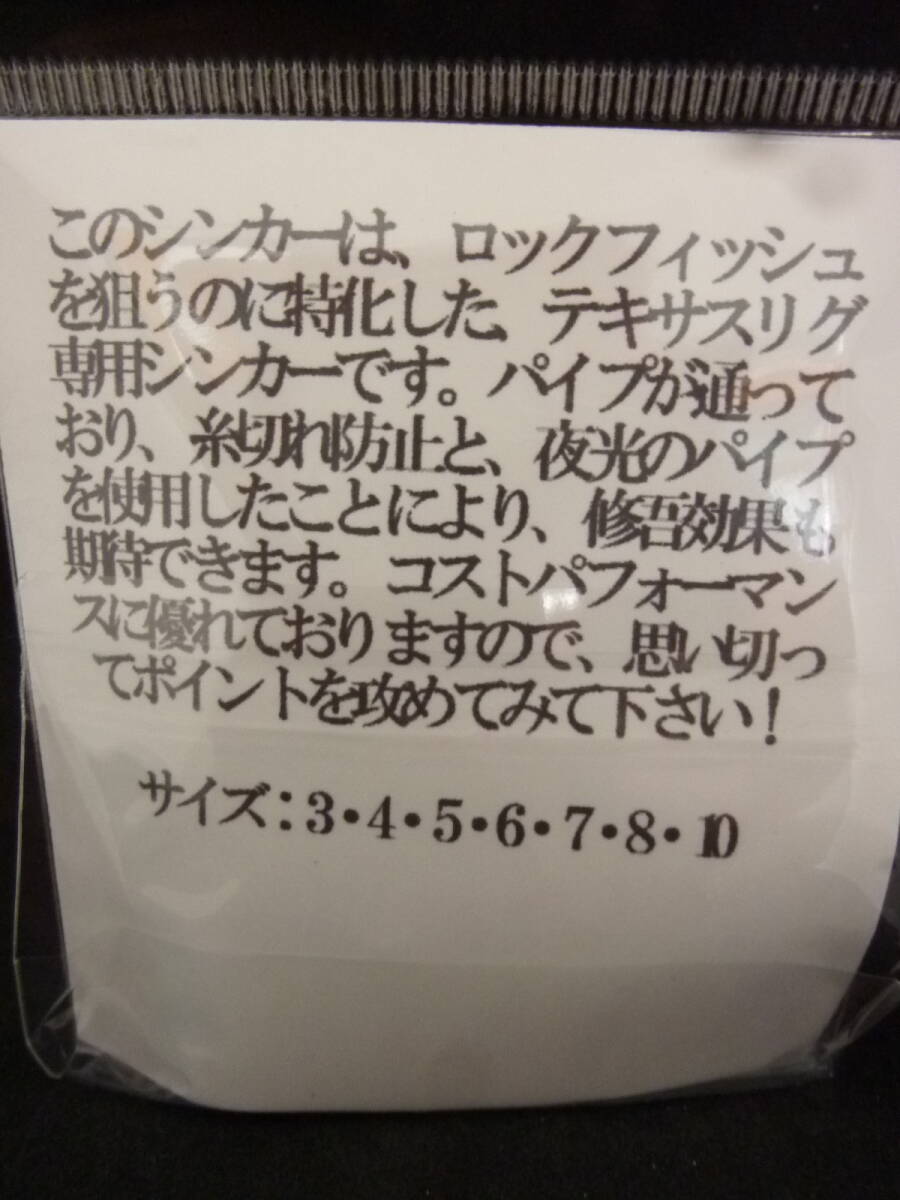 このシンカーは、ロックフィッシュ
を狙うのに特化した、テキサスリグ
専用シンカーです。パイプが通って
おり、糸切れ防止と、夜光のパイプ
を使用したことにより、修吾効果も
期待できます。コストパフォーマン
スに優れておりますので、思い切っ
てポイントを攻めてみて下さい！
サイズ：3・4・5・6・7・8・10